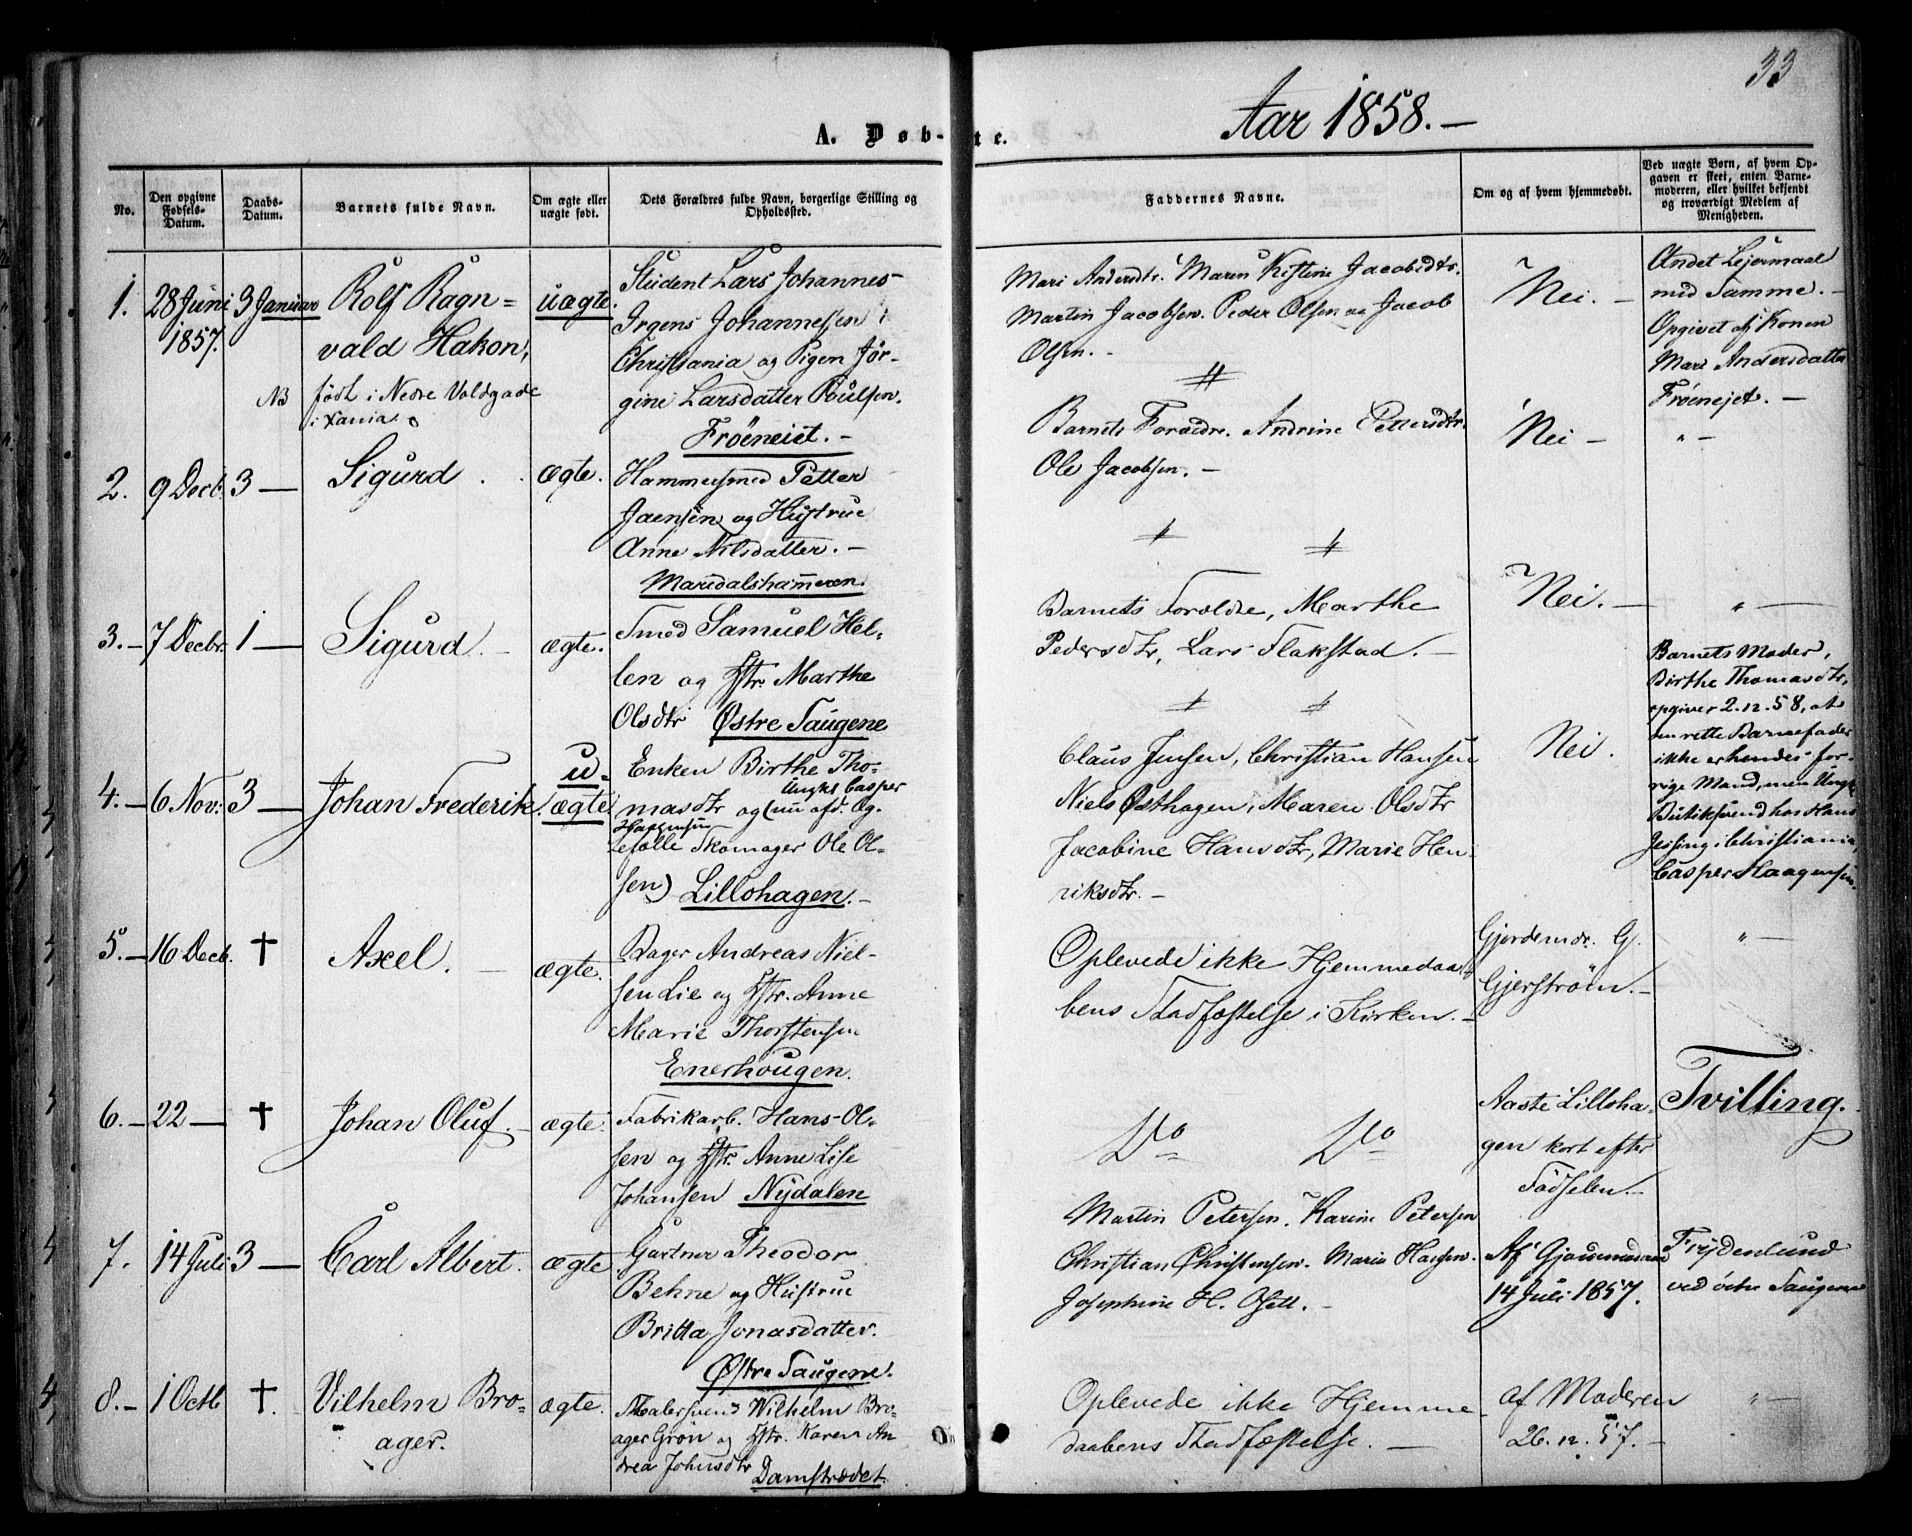 33
Aar 1858.
A. Døb- te.
No.
Den opgivne Fødsels-Datum.
Daabs-Datum.
Barnets fulde Navn.
Om ægte eller uægte født.
Dets Forældres fulde Navn, borgerlige Stilling og Opholdssted.
Faddernes Navne.
Om og af hvem hjemmedøbt.
Ved uægte Børn, af hvem Opgaven er skeet, enten Barnemoderen, eller hvilket bekjendt og troværdigt Medlem af Menigheden.
1. 28 Juni 1857. 3 Januar
Rolf Ragn=
vald Hakon,
NB født i Nedre Voldgade
i Xania.
uægte.
Student Lars Johannes
Irgens Johannessen i
Christiania og Pigen Jør-
gine Larsdatter Poulsen.
Frøeneiet. -
Mari Andersdtr. Maren Kistine Jacobsdtr.
Martin Jacobsen. Peder Olsen og Jacob
Olsen. -
Nei. -
Andet Leiermaal
med Samme. -
Opgivet af Konen
Mari Andersdatter
Frøenejet. -
2. 9 Decb. 3 -
Sigurd
ægte.
Hammersmed Petter
Jaensen og Hustrue
Anne Nilsdatter. -
Maridalshammeren.
Barnets Forældre. Andrine Pettersdtr.
Ole Jacobsen. -
Nei -
" -
3. - 7 Decbr. 1 -
Sigurd. -
ægte.
Smed Samuel Hel-
len og Hstr. Marthe
Olsdtr Østre Saugene
Barnets Forældre, Marthe
Pedersdtr, Lars Flakstad. -
Nei. -
" -
4. - 6 Nov. 3 -
Johan Frederik.
u-
ægte.
Enken Birthe Tho-
Ungkl Casper
masdtr og (nu afd. Æg-
Haagensen
tefælle Skomager Ole Ol-
sen) Lillohagen. -
Claus Jensen, Christian Hansen
Niels Østhagen, Maren Olsdtr
Jacobine Hansdtr, Marie Hen-
riksdtr. -
Nei.
Barnets Moder,
Birthe Thomasdtr,
opgiver 2. 12. 58, at
den rette Barnefader
ikke er hendes for-
rige Mand, men Ungk.
Butiksvend hos Hans
Jessing i Christiania,
Casper Haagensen.
5. - 16 Decb. †
Axel. -
ægte.
Bager Andreas Niel-
sen Lie og Hstr. Anne
Marie Thorstensen
Enerhougen.
Oplevede ikke Hjemmedaa-
bens Stadfæstelse i Kirken. -
Gjordemdr. G.
Gjerstrøm. -
" -
6. - 22 - †
Johan Oluf. -
ægte.
Fabrikarb. Hans Ol-
sen og Hstr. Anne Lise
Johansen Nydalen
Do Do
Aaste Lilloha-
gen kort efter
Fødselen. -
Tvilling.
7. 14 Juli 3 -
Carl Albert.
ægte
Gartner Theodor
Behne og Hustrue
Britta Jonasdatter.
Østre Saugene.
Martin Petersen. Karine Petersen
Christian Christensen. Marie Hansen.
Josephine H. Osett. -
Af Gjordemoderen
14 Juli 1857.
Frydenlund
ved østre Saugene
8. - 1 Octb †.
Vilhelm Bro-
ager.
ægte.
Malersvend Wilhelm Bro-
ager Grøn og Hstr. Karen An
drea Johnsdtr Damstrædet.
Oplevede ikke Hjemme
daabens Stadfæstelse. -
af Moderen
26. 12. 57. -
" -